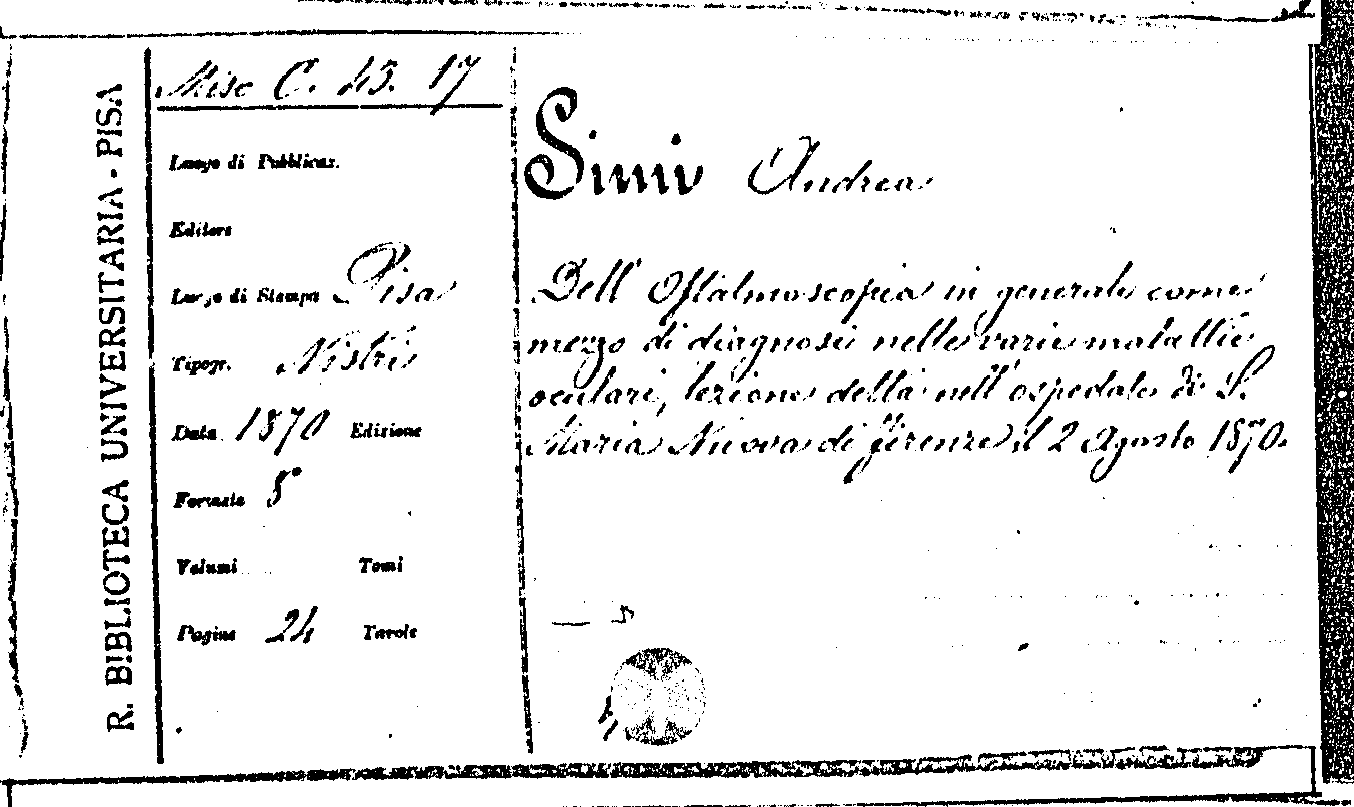 R. BIBLIOTECA UNIVERSITARIA - PISA
Misc C. 43. 17
Luogo di Pubblicaz.
Editore
Luogo di Stampa Pisa
Tipogr. Nistri
Data 1870 Edizione
Formato 8°
Volumi Tomi
Pagine 24 Tavole
Simi Andrea
Dell' Oftalmoscopia in generale come
mezzo di diagnosi nelle varie malattie
oculari, lezione detta nell' ospedale di S.
Maria Nuova di Firenze il 2 Agosto 1870.